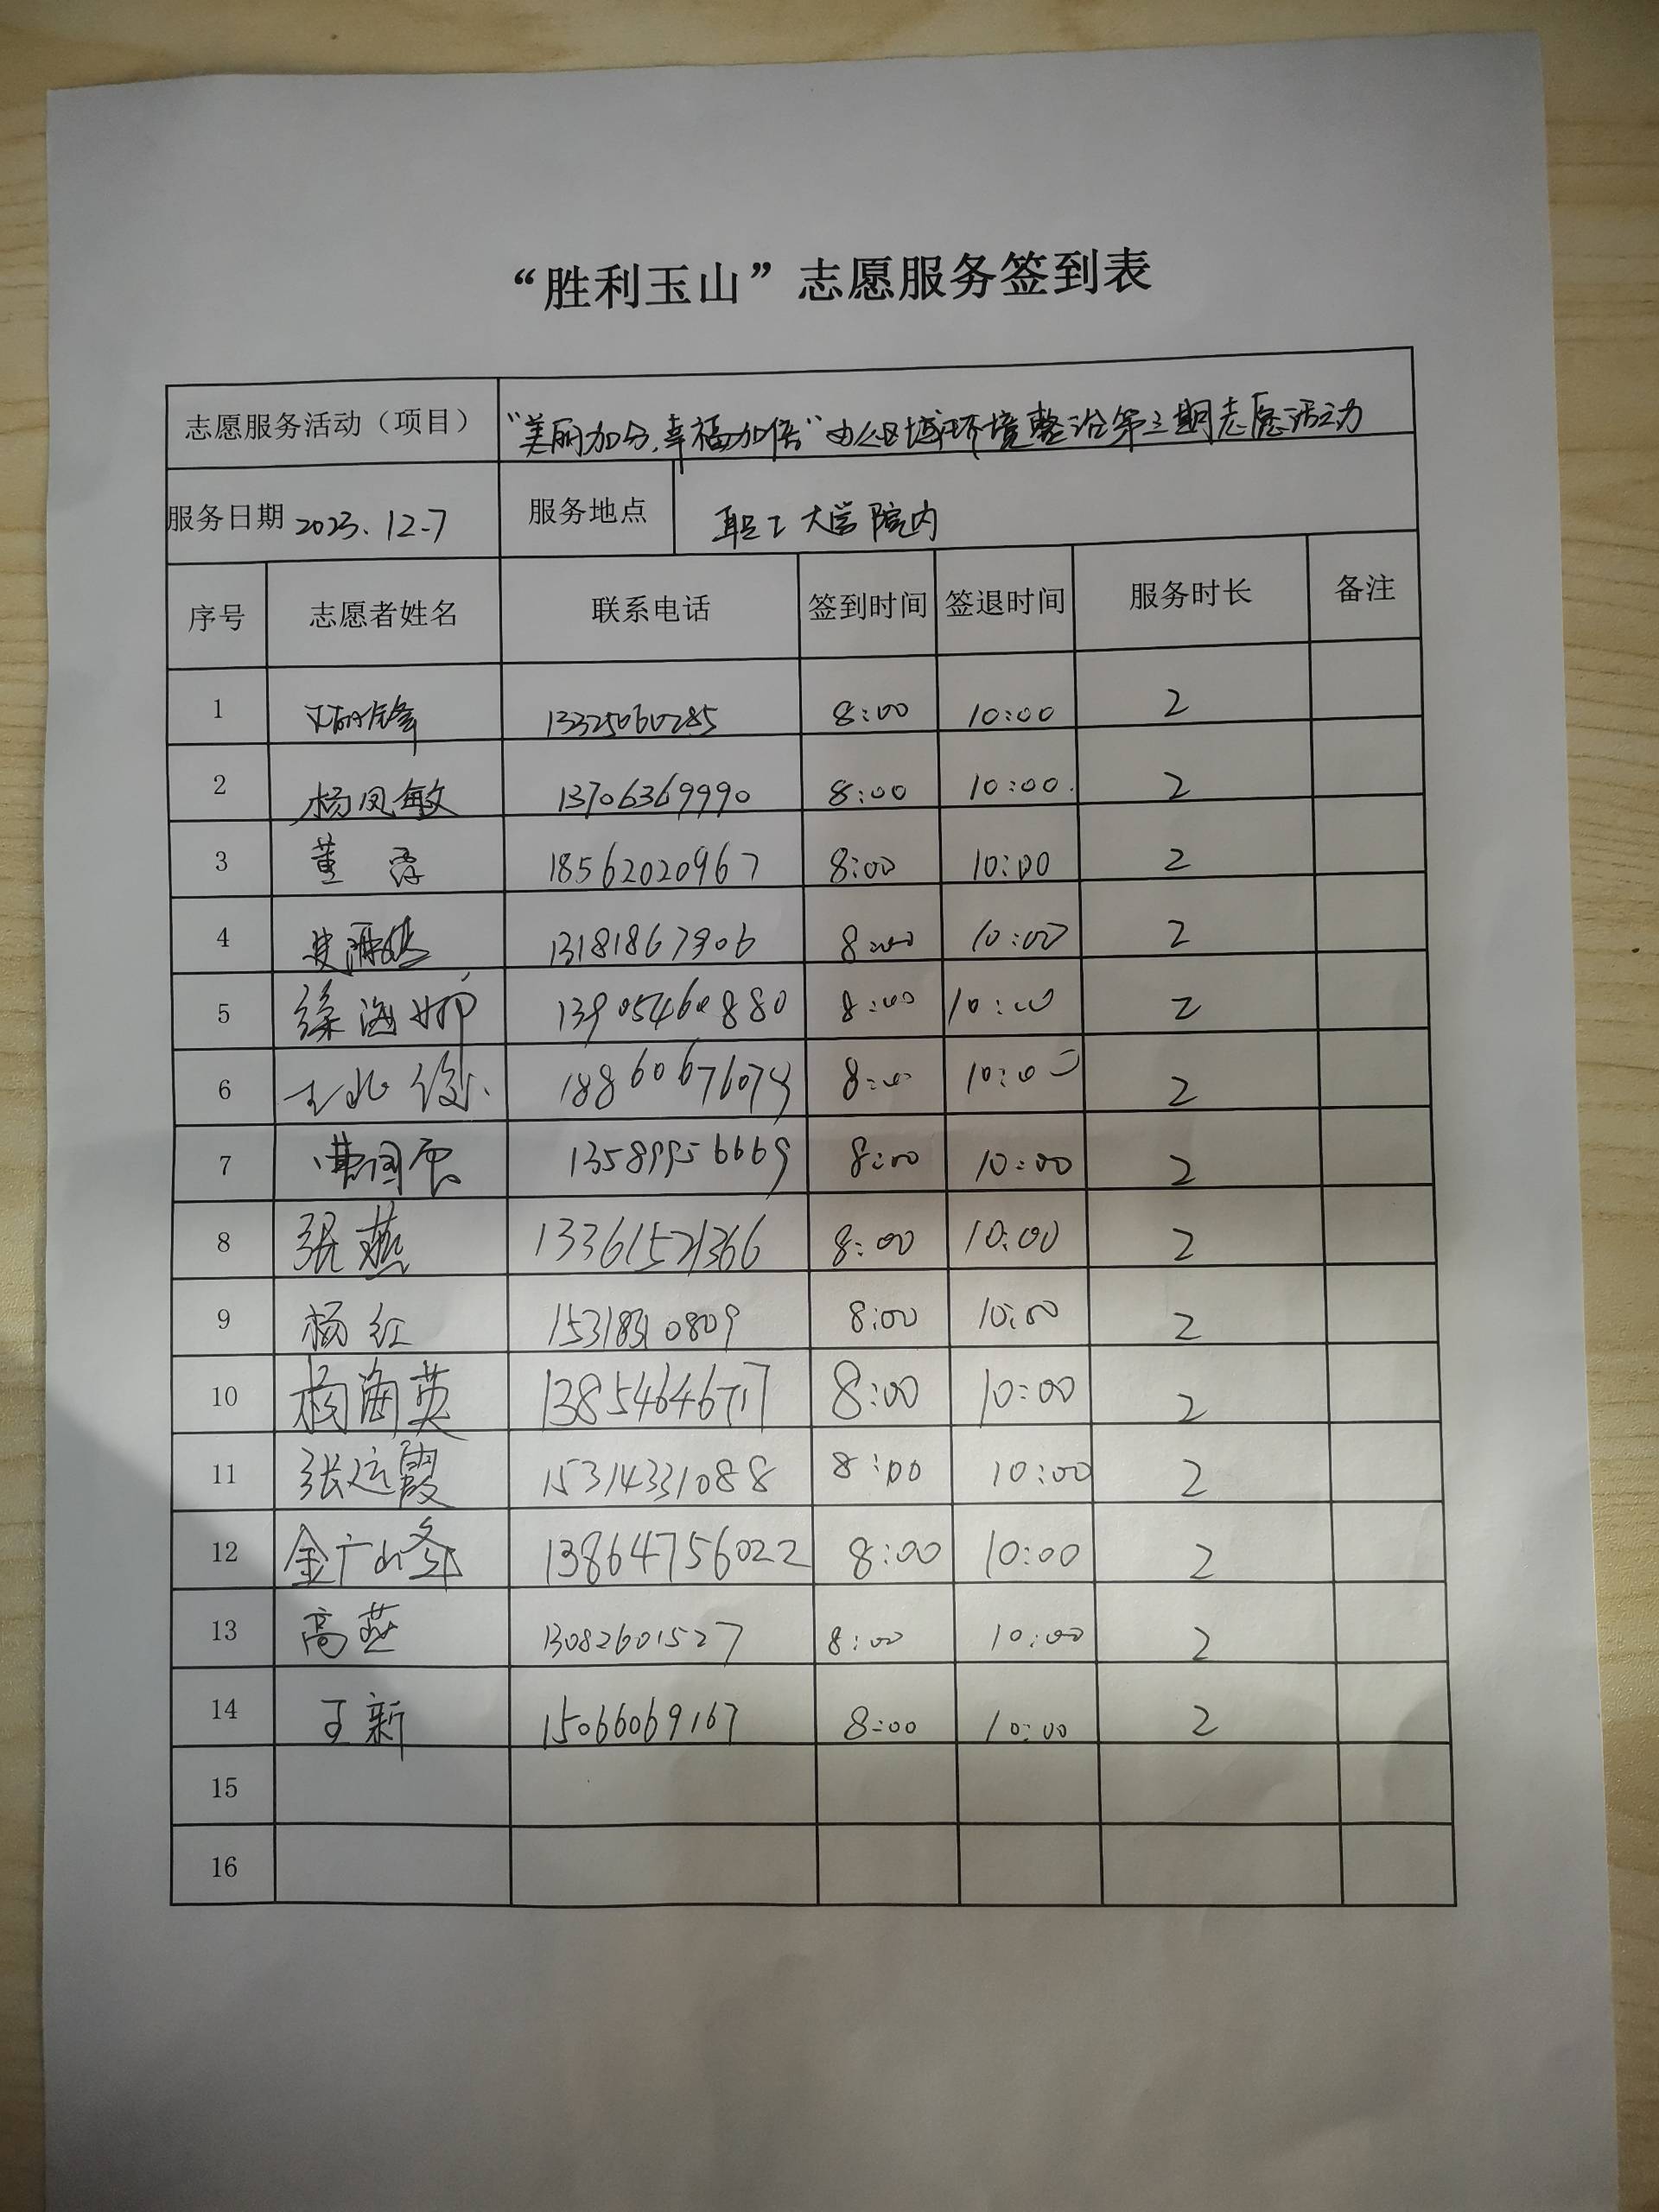 “胜利玉山”志愿服务签到表
志愿服务活动（项目） “美丽加分，幸福加倍”办公区域环境整治第三期志愿活动
服务日期 2023.12.7 服务地点 职工大学院内
序号 志愿者姓名 联系电话 签到时间 签退时间 服务时长 备注
1 13325060285 8:00 10:00 2
2 杨凤敏 13706369990 8:00 10:00 2
3 董霞 18562020967 8:00 10:00 2
4 13181867906 8:00 10:00 2
5 徐海娜 13905460880 8:00 10:00 2
6 18860676074 8:00 10:00 2
7 曹国辰 13589956669 8:00 10:00 2
8 张燕 13361521366 8:00 10:00 2
9 杨红 8:00 10:00 2
10 杨海英 13854646717 8:00 10:00 2
11 张运霞 15314331088 8:00 10:00 2
12 金广峰 13864756022 8:00 10:00 2
13 高燕 13082601527 8:00 10:00 2
14 王新 15066069167 8:00 10:00 2
15
16